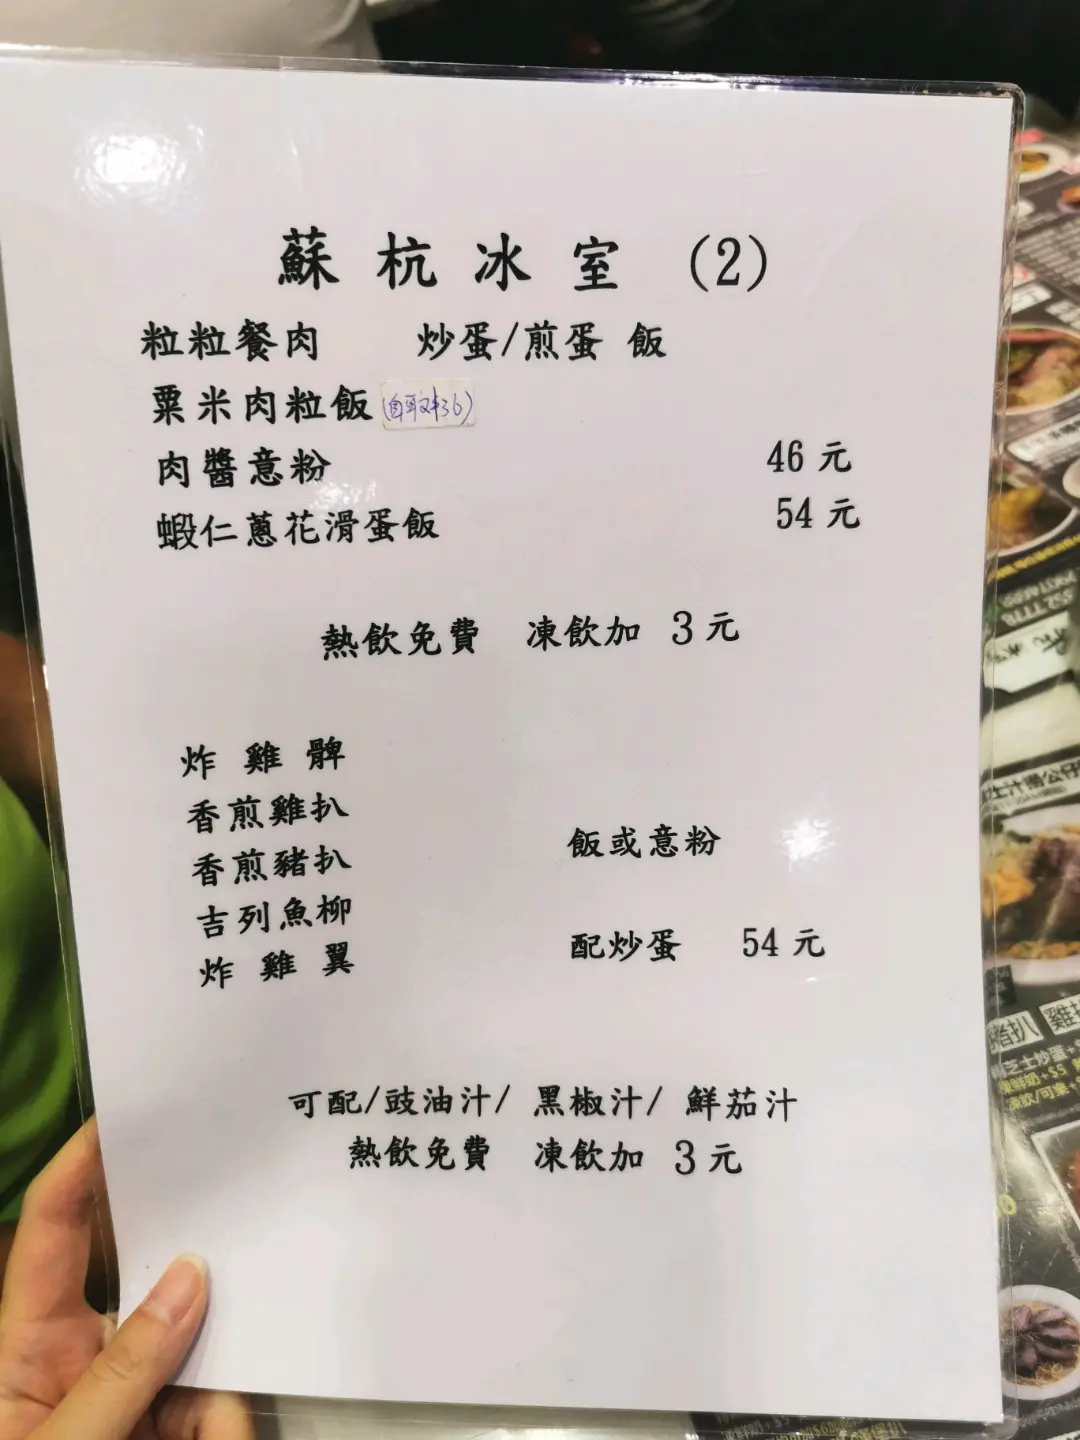 蘇杭冰室 (2)
粒粒餐肉 炒蛋/煎蛋 飯
粟米肉粒飯 (自取36)
肉醬意粉 46元
蝦仁蔥花滑蛋飯 54元
熱飲免費 凍飲加 3元
炸雞髀
香煎雞扒
香煎豬扒 飯或意粉
吉列魚柳
炸雞翼 配炒蛋 54元
可配/豉油汁/ 黑椒汁/ 鮮茄汁
熱飲免費 凍飲加 3元
豬扒
芝士炒蛋+